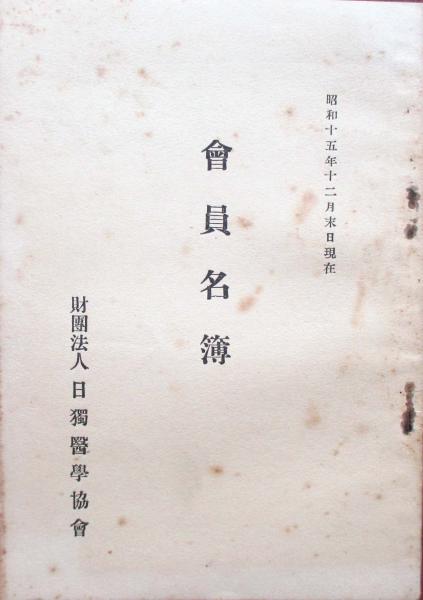 昭和十五年十二月末日現在
會員名簿
財團法人日獨醫學協會